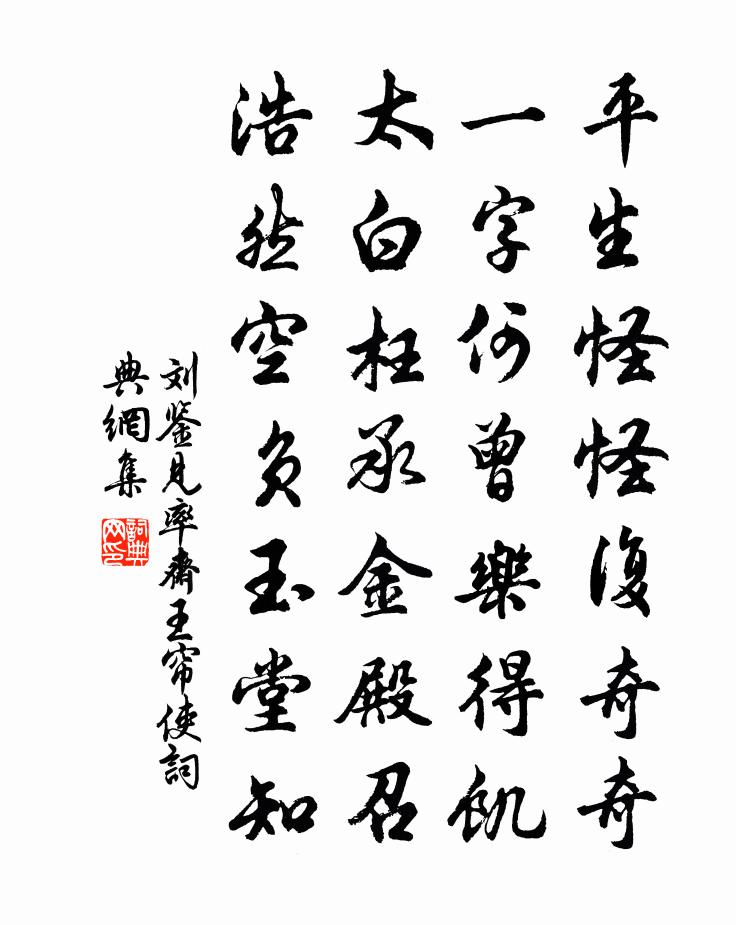 平生怪怪復奇奇
一字何曾樂得飢
太白枉承金殿召
浩然空負玉堂知
刘鉴見率齋王帘使詞
典網集
詞典网印